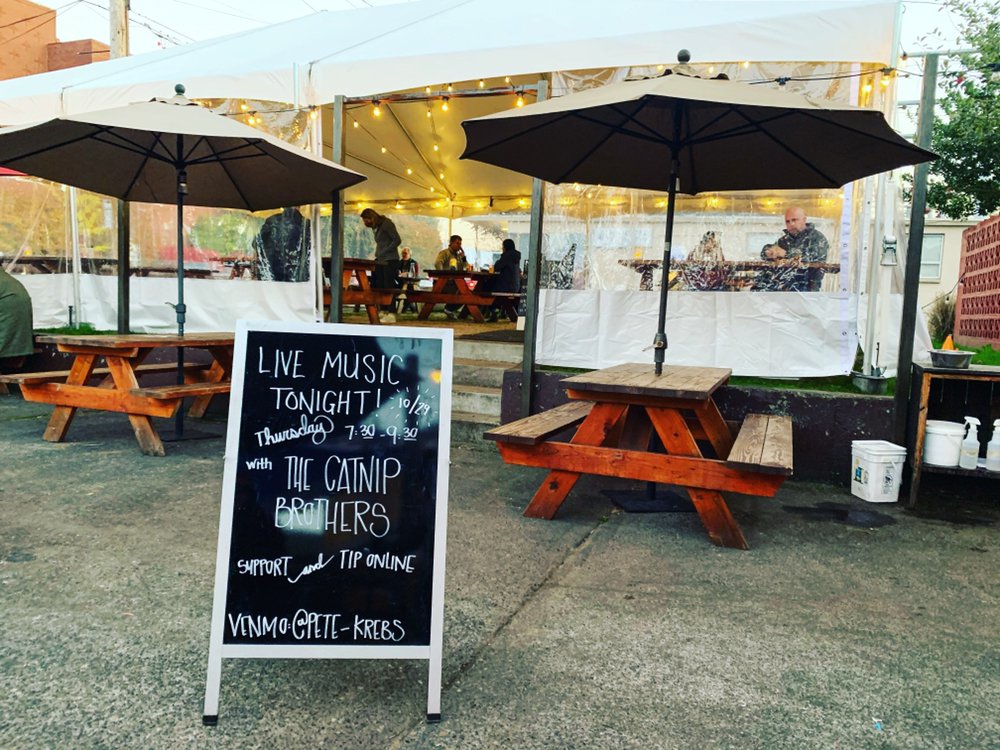 LIVE MUSIC
TONIGHT! 10/29
Thursday 7:30-9:30
with THE CATNIP
BROTHERS
SUPPORT and TIP ONLINE
VENMO:@PETE-KREBS